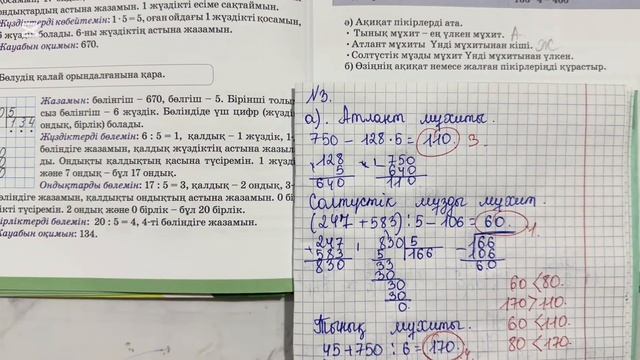 ондықтардың астына жазамын. 1 жүздікті есіме сақтаймын.
Жүздіктерді көбейтемін: 1 · 5 = 5, оған ойдағы 1 жүздікті қосамын,
6 жүздік болады. 6-ны жүздіктің астына жазамын.
Жауабын оқимын: 670.
Бөлудің қалай орындалғанына қара.
Жазамын: бөлінгіш – 670, бөлгіш – 5. Бірінші толық-
сыз бөлінгіш – 6 жүздік. Бөліндіде үш цифр (жүздік,
ондық, бірлік) болады.
Жүздіктерді бөлемін: 6 : 5 = 1, қалдық – 1 жүздік, 1-
бөліндіге жазамын, қалдық жүздіктің астына жазыл-
ады. Ондықты қалдықтың қасына түсіремін. 1 жүздік
және 7 ондық – бұл 17 ондық.
Ондықтарды бөлемін: 17 : 5 = 3, қалдық – 2 ондық, 3-
бөліндіге жазамын, қалдықты ондықтың астына жазамын. 0 бір-
лікті түсіремін. 2 ондық және 0 бірлік – бұл 20 бірлік.
Бірліктерді бөлемін: 20 : 5 = 4, 4-ті бөліндіге жазамын.
Жауабын оқимын: 134.
ә) Ақиқат пікірлерді ата.
• Тынық мұхит – ең үлкен мұхит. А
• Атлант мұхиты Үнді мұхитынан кіші. Ж
• Солтүстік мұзды мұхит Үнді мұхитынан үлкен.
б) Өзіңнің ақиқат немесе жалған пікірлеріңді құрастыр.
№3.
а). Атлант мұхиты.
750 – 128 · 5 = 110. 3.
× 128 – 750
5 640
640 110
Солтүстік мұзды мұхит.
(247 + 583) : 5 – 106 = 60. 1.
+ 247 830 5 – 166
583 5 166 106
830 33 60
30
30
30
0.
60 < 80.
170 > 110.
60 < 110.
80 < 170.
Тынық мұхиты.
45 + 750 : 6 = 170.